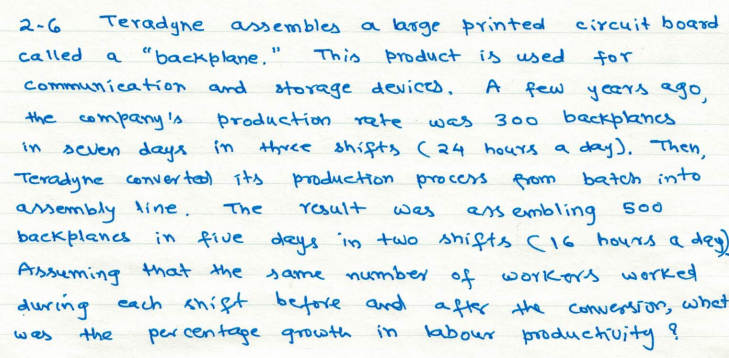 2-6 Teradyne assembles a large printed circuit board
called a "backplane." This product is used for
communication and storage devices. A few years ago,
the company's production rate was 300 backplanes
in seven days in three shifts (24 hours a day). Then,
Teradyne converted its production process from batch into
assembly line. The result was assembling 500
backplanes in five days in two shifts (16 hours a day)
Assuming that the same number of workers worked
during each shift before and after the conversion, what
was the percentage growth in labour productivity?